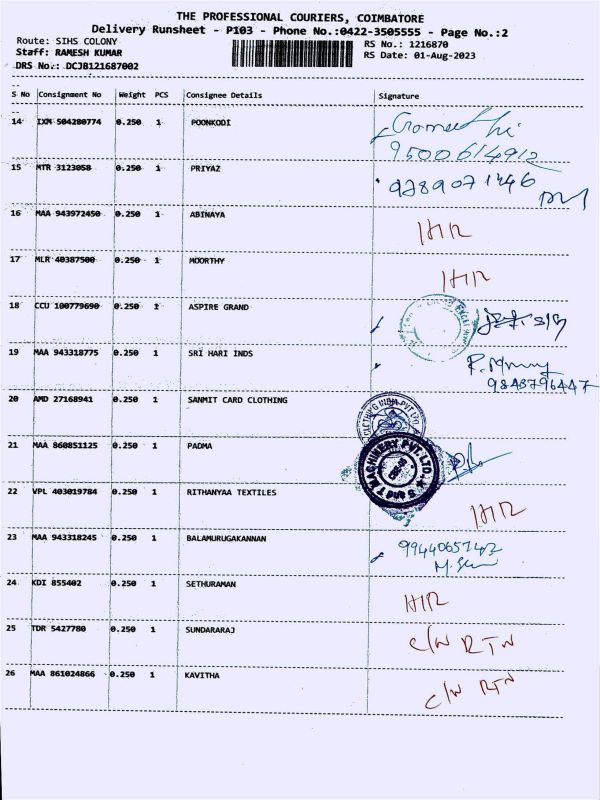 THE PROFESSIONAL COURIERS, COIMBATORE
Delivery Runsheet - P103 - Phone No.:0422-3505555 - Page No.:2
Route: SIHS COLONY
RS No.: 1216870
Staff: RAMESH KUMAR
RS Date: 01-Aug-2023
DRS No.: DCJB121687002
S No Consignment No Weight PCS Consignee Details Signature
14 IXM 504280774 0.250 1 POONKODI
9500614912
15 MTR 3123058 0.250 1 PRIYAZ 9789071446
16 MAA 943972450 0.250 1 ABINAYA
17 MLR 40387500 0.250 1 MOORTHY
18 CCU 100779690 0.250 1 ASPIRE GRAND
19 MAA 943318775 0.250 1 SRI HARI INDS
9843796447
20 AMD 27168941 0.250 1 SANMIT CARD CLOTHING
CLOTHING INDIA PVT LTD
21 MAA 860851125 0.250 1 PADMA
MACHINERY PVT. LTD.
22 VPL 403019784 0.250 1 RITHANYAA TEXTILES
23 MAA 943318245 0.250 1 BALAMURUGAKANNAN
24 KDI 855402 0.250 1 SETHURAMAN
25 TDR 5427780 0.250 1 SUNDARARAJ C/W RTN
26 MAA 861024866 0.250 1 KAVITHA C/W RTN